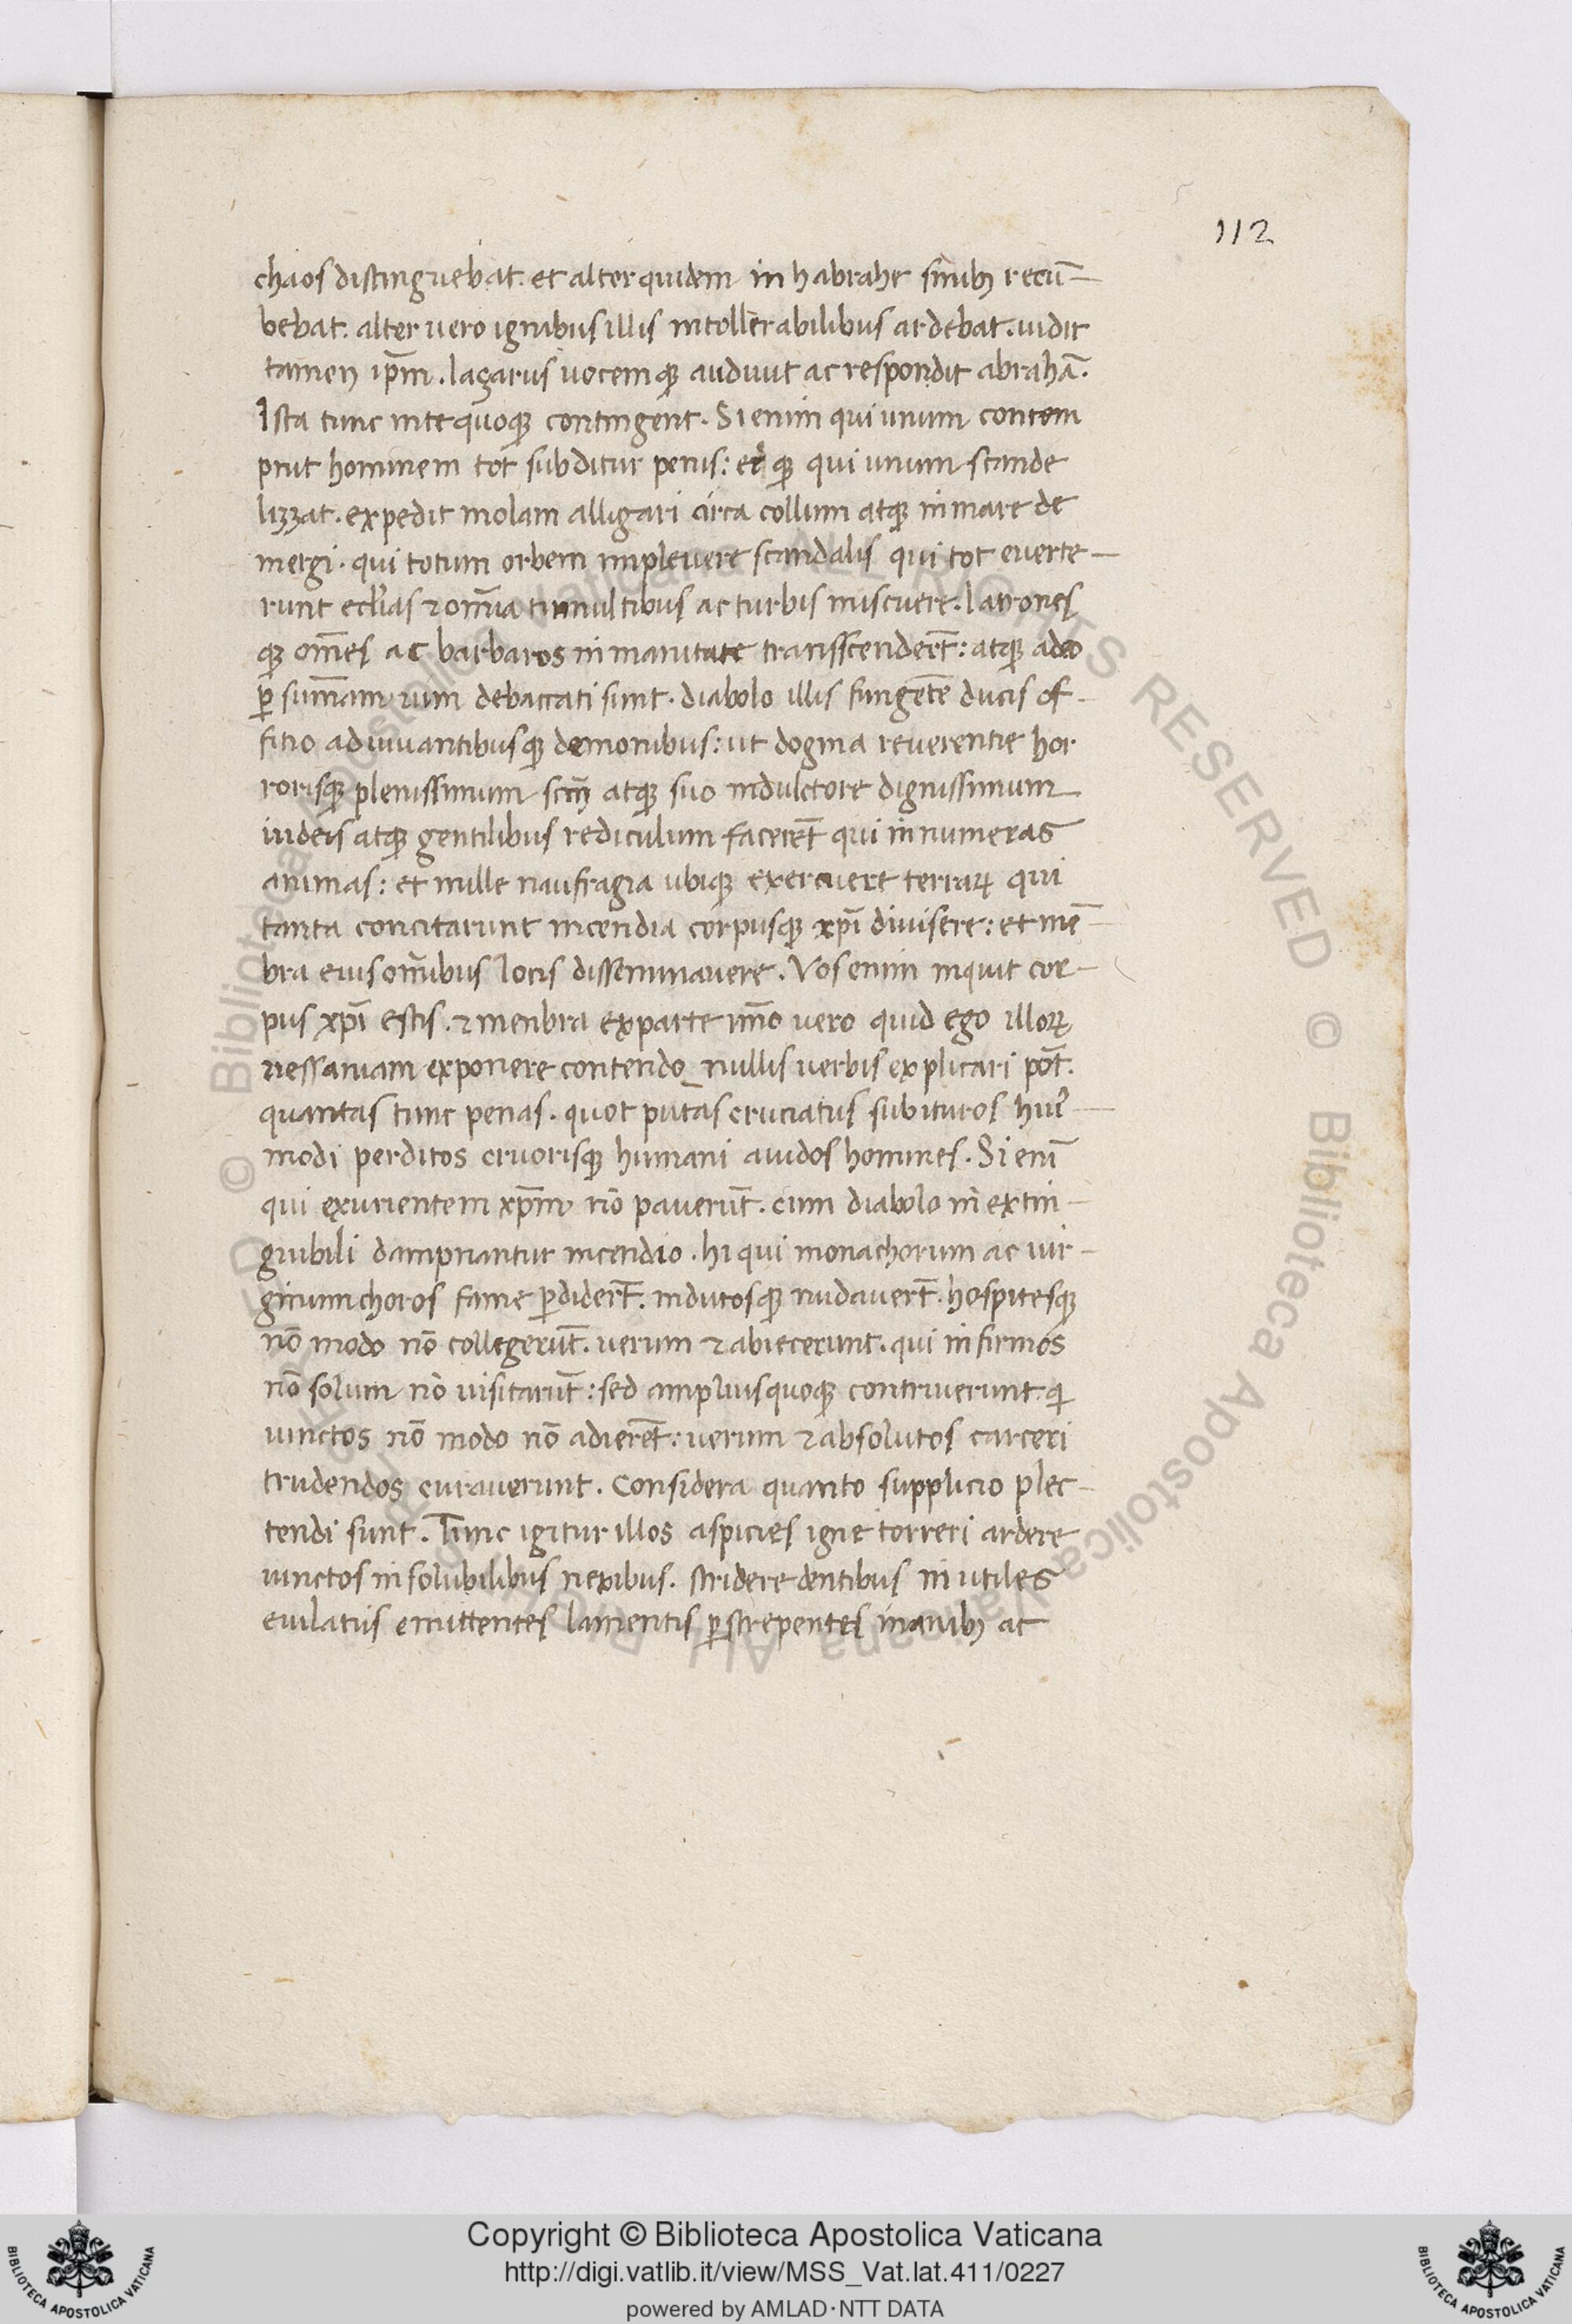 112
chaos distinguebat. et alter quidem in habrahe sinibꝫ recū-
bebat. alter uero ignibus illis intollerabilibus ardebat. uidit
tamen ip̄m. lazarus uocemqꝫ audiuit ac respondit abrahā.
Ista tunc in te quoqꝫ contingent. Si enim qui unum contem
psit hominem tot subditur penis: et qꝫ qui unum scande
lizzat. expedit molam alligari circa collum atqꝫ in mare de
mergi. qui totum orbem impleuere scandalis qui tot euerte-
runt eccl̄ias ⁊ om̄ia tumultibus ac turbis miscuere. latrones
qꝫ om̄es ac barbaros inmanitate transscender̄t: atqꝫ adeo
ꝑ sum̄am debaccati sunt. diabolo illis fungēte ducis of-
fitio adiuuantibusqꝫ demonibus: ut dogma reuerentie hor
rorisqꝫ plenissimum sc̄m atqꝫ suo indultore dignissimum
iudeis atqꝫ gentilibus rediculum facerēt qui innumeras
animas: et mille naufragia ubiqꝫ exercuere terraꝝ qui
tanta concitarunt incendia corpusqꝫ xp̄i diuisere: et mē-
bra eius om̄ibus locis disseminauere. Vos enim inquit cor-
pus xp̄i estis. ⁊ menbra ex parte im̄o uero quid ego illoꝝ
uessaniam exponere contendo nullis uerbis explicari pōt.
quantas tunc penas. quot putas cruciatus subituros hui᾽-
modi perditos cruorisqꝫ humani auidos homines. Si enī
qui exurientem xp̄m nō pauerūt. cum diabolo in extin-
guibili dampnantur incendio. hi qui monachorum ac uir-
ginum choros fame ꝑdider̄t. indutosqꝫ nudauer̄t. hospitesqꝫ
nō modo nō collegerūt. uerum ⁊ abiecerunt. qui infirmos
nō solum nō uisitarūt: sed amplius quoqꝫ contriuerunt. qi
uinctos nō modo nō adierēt: uerum ⁊ absolutos carceri
trudendos curauerunt. Considera quanto supplicio plec-
tendi sunt. Tunc igitur illos aspicies igne torreri ardere
uinctos insolubilibus nexibus. stridere dentibus inutiles
eiulatus emittentes lamentis ꝑstrepentes inanibꝫ ac
Copyright © Biblioteca Apostolica Vaticana
http://digi.vatlib.it/view/MSS_Vat.lat.411/0227
powered by AMLAD·NTT DATA